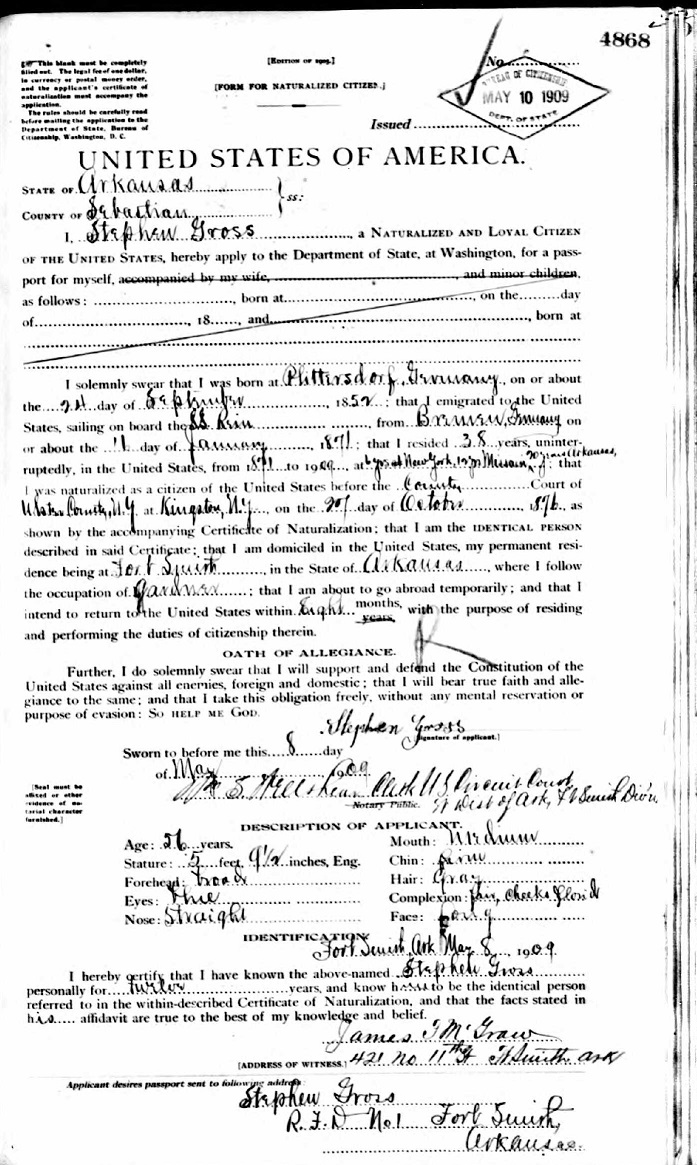 4868
This blank must be completely
filled out. The legal fee of one dollar,
in currency or postal money order,
and the applicant's certificate of
naturalization must accompany the
application.
The rules should be carefully read
before mailing the application to the
Department of State, Bureau of
Citizenship, Washington, D. C.
[EDITION OF 1905.]
[FORM FOR NATURALIZED CITIZEN.]
No.
BUREAU OF CITIZENSHIP
MAY 10 1909
DEPT. OF STATE
Issued
UNITED STATES OF AMERICA.
STATE OF Arkansas
COUNTY OF Sebastian
ss:
I, Stephen Gross, a NATURALIZED AND LOYAL CITIZEN
OF THE UNITED STATES, hereby apply to the Department of State, at Washington, for a pass-
port for myself, accompanied by my wife, and minor children,
as follows: , born at , on the day
of , 18 , and , born at
I solemnly swear that I was born at Plittersdorf, Germany, on or about
the 24 day of September, 1852; that I emigrated to the United
States, sailing on board the SS from Bremen, Germany on
or about the 11 day of January, 1871; that I resided 38 years, uninter-
ruptedly, in the United States, from 1871 to 1909, at 6 yrs at New York, 12 yrs Missouri, 20 years Arkansas, ; that
I was naturalized as a citizen of the United States before the County Court of
Ulster County, N.Y. at Kingston, N.Y., on the 20 day of October 1876, as
shown by the accompanying Certificate of Naturalization; that I am the IDENTICAL PERSON
described in said Certificate; that I am domiciled in the United States, my permanent resi-
dence being at Fort Smith, in the State of Arkansas, where I follow
the occupation of Gardner; that I am about to go abroad temporarily; and that I
intend to return to the United States within Eight months, years, with the purpose of residing
and performing the duties of citizenship therein.
OATH OF ALLEGIANCE.
Further, I do solemnly swear that I will support and defend the Constitution of the
United States against all enemies, foreign and domestic; that I will bear true faith and alle-
giance to the same; and that I take this obligation freely, without any mental reservation or
purpose of evasion: SO HELP ME GOD.
Stephen Gross
[Signature of applicant.]
Sworn to before me this 8 day
of May 1909
[Seal must be
affixed or other
evidence of no-
tarial character
furnished.]
Clerk U S Circuit Court
Notary Public.
W Dist of Ark, Ft Smith Div'n
DESCRIPTION OF APPLICANT.
Age: 56 years.
Stature: 5 feet 9 1/2 inches, Eng.
Forehead: broad
Eyes: blue
Nose: Straight
Mouth: Medium
Chin: firm
Hair: Gray
Complexion: fair, cheeks florid
Face: Long
IDENTIFICATION.
Fort Smith, Ark May 8, 1909
I hereby certify that I have known the above-named Stephen Gross
personally for twelve years, and know him to be the identical person
referred to in the within-described Certificate of Naturalization, and that the facts stated in
his affidavit are true to the best of my knowledge and belief.
James T McGraw
[ADDRESS OF WITNESS.] 421 No 11th St Ft Smith Ark
Applicant desires passport sent to following address:
Stephen Gross
R. F. D No 1 Fort Smith,
Arkansas.